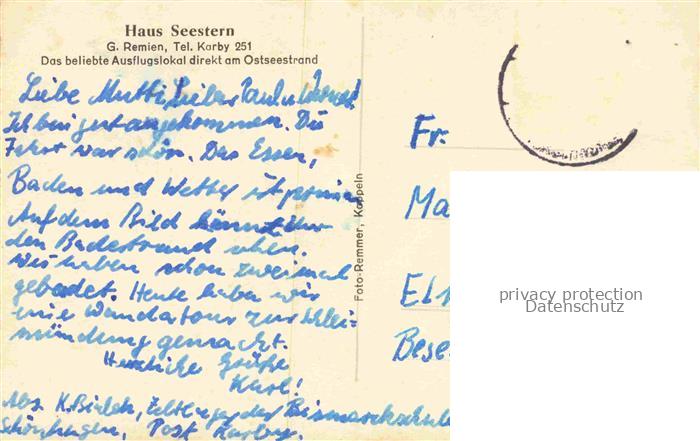 Haus Seestern
G. Remien, Tel. Karby 251
Das beliebte Ausflugslokal direkt am Ostseestrand
Liebe Mutti, Lieber Paul u.
Ich bin gut angekommen. Die
Fahrt war schön. Das Essen,
Baden und Wetter ist prima
Auf dem Bild könnt ihr
den Badestrand sehen.
Wir haben schon zweimal
gebadet. Heute haben wir
eine Wandertour zur Schlei-
mündung gemacht.
Herzliche Grüße
Karl!
Abs. K. Zeltlager der Bismarckschule
Schönhagen, Post Karby.
Foto-Remmer, Kappeln
Fr.
Ma
El
Bese
privacy protection
Datenschutz